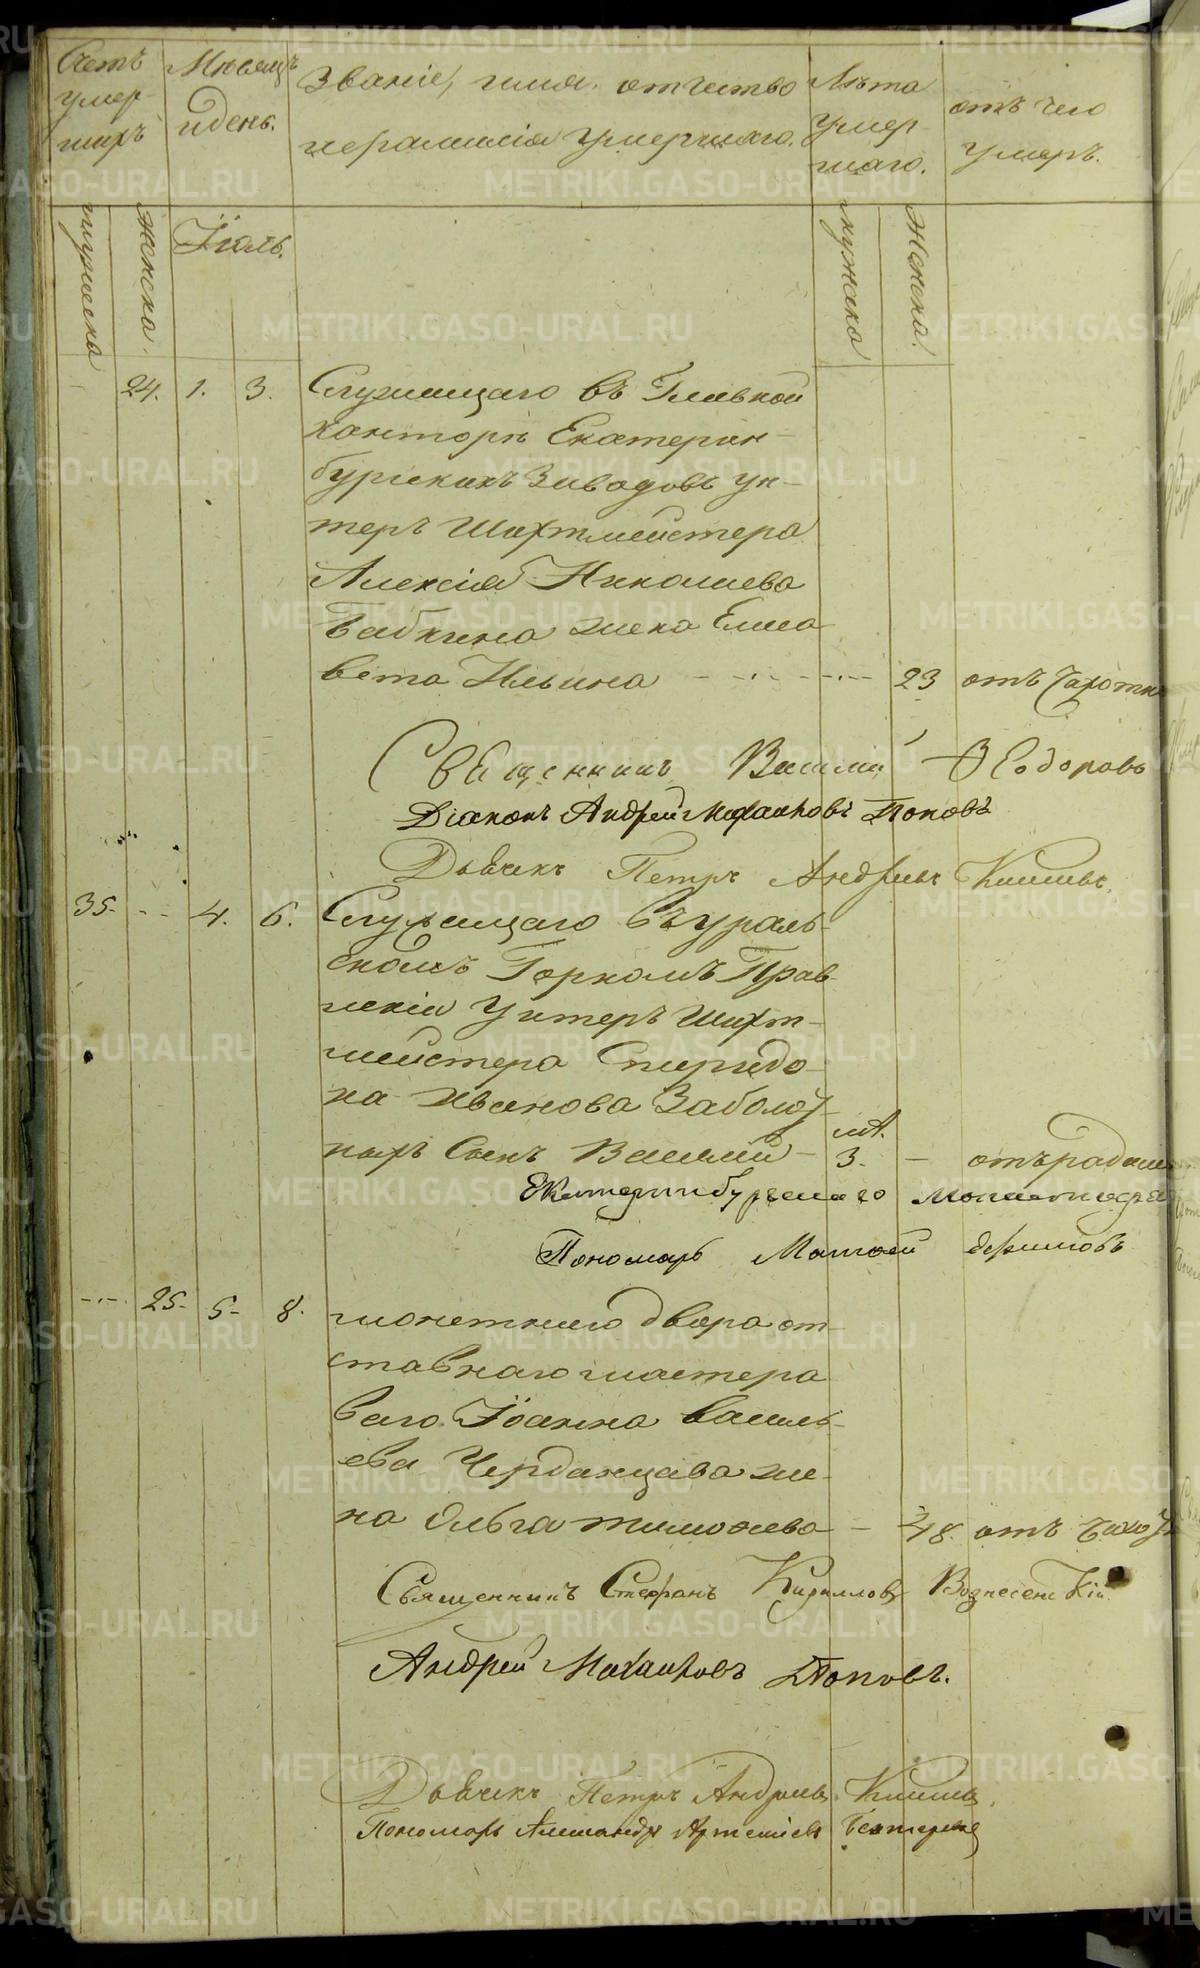 Счетъ умер-шихъ
Мѣсяцъ и день.
Званіе, имя, отчество и фамилія умершаго.
Лѣта умер-шаго.
отъ чего умеръ.
мужеска
женска.
Іюль.
мужеска
женска.
24. 1. 3. Служащаго въ Главной
Конторѣ Екатерин-
бургскихъ Заводовъ Ун-
теръ Шихтмейстера
Алексія Николаева
Бабкина жена Елиса
вета Ильина 23 отъ Чахотки
Священникъ Василій Ѳеодоровъ
Діаконъ Андрей Михайловъ Поповъ
Дьячекъ Петръ Андреевъ
35. 4. 6. Служащаго въ Ураль-
скомъ Горномъ Прав
леніи Унтеръ Шихт-
мейстера Спиридо
на Иванова Заболот
ныхъ Сынъ Василій 3. отъ
Екатеринбургскаго
Пономарь Матвей Ефимовъ
25. 5. 8. монетнаго двора от-
ставнаго мастеро
ваго Іоанна Василь-
ева Черданцава же-
на Ольга Тимофеева 48. отъ
Священникъ Стефанъ Кирилловъ Вознесенскій
Андрей Михайловъ Поповъ.
Дьячекъ Петръ Андреевъ
Пономарь Александръ Артемьевъ
METRIKI.GASO-URAL.RU